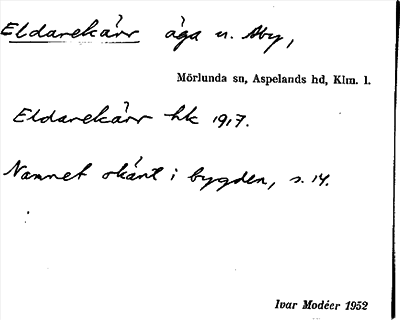 Eldarekärr äga u. Åby,
Mörlunda sn, Aspelands hd, Klm. l.
Eldarekärr hk 1917.
Namnet okänt i bygden, s. 14.
Ivar Modéer 1952